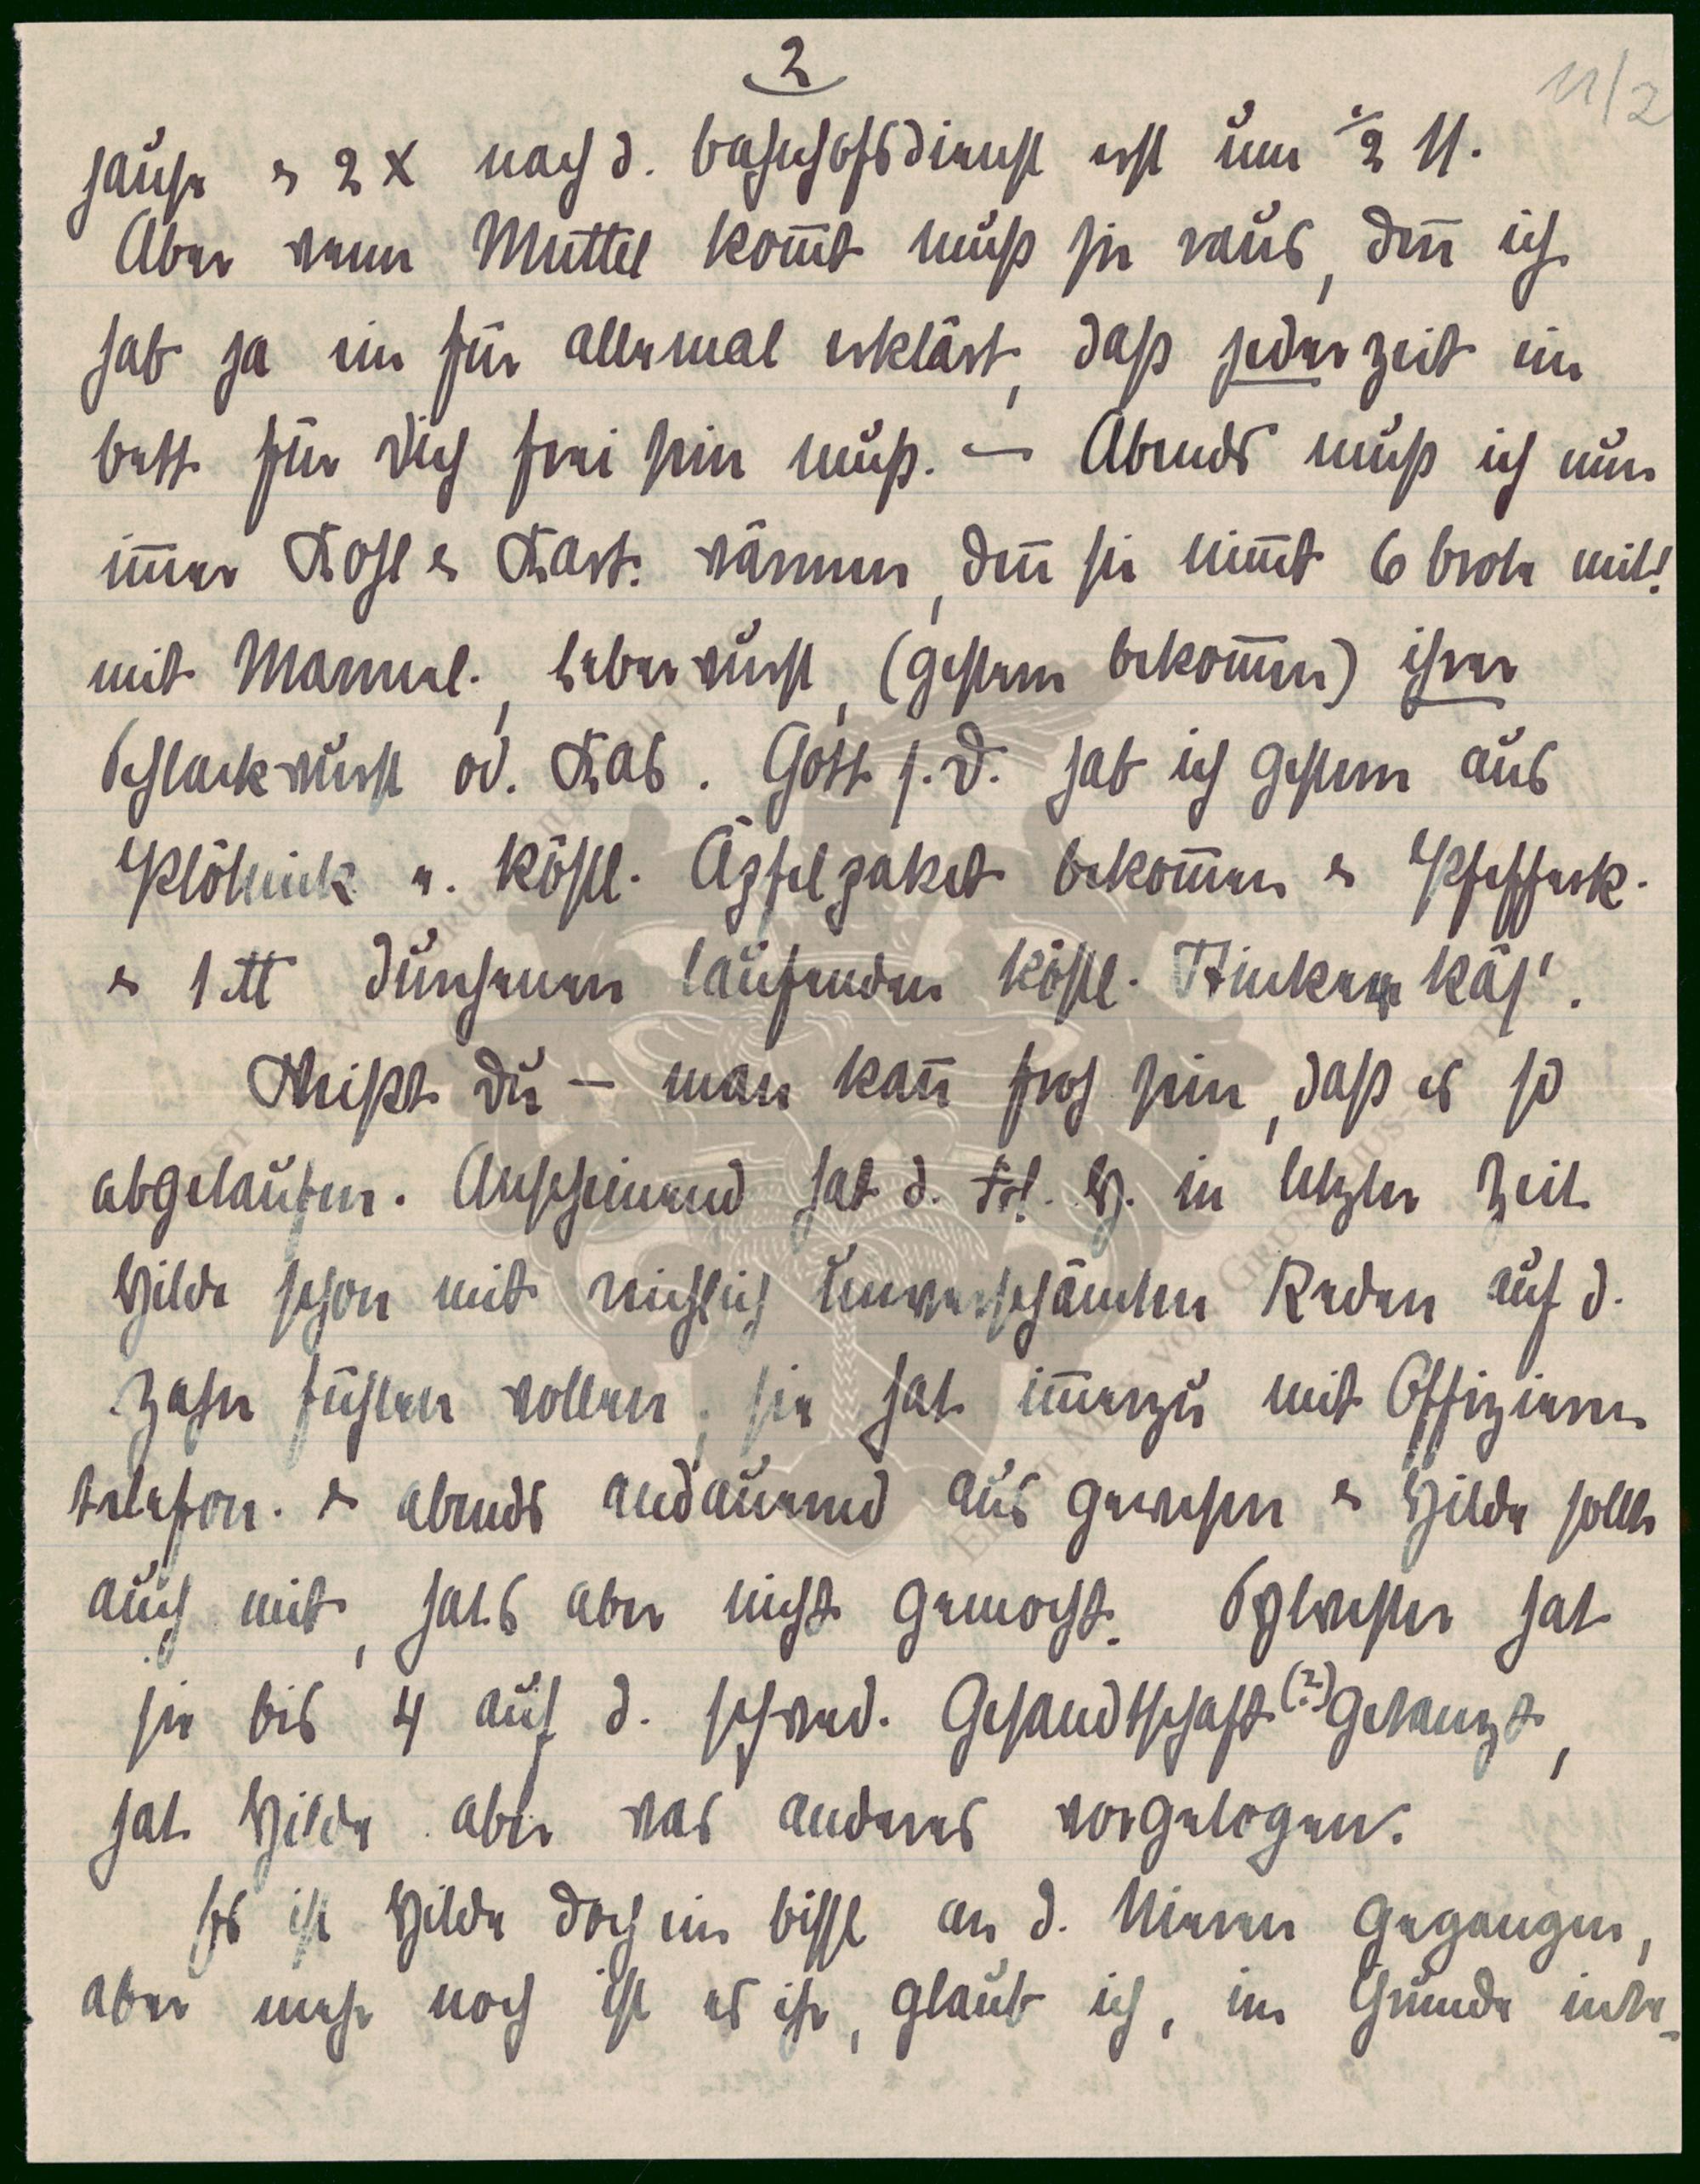 2
11/2
hause & 2 x nach d. Bahnhofsdienst erst um ½ 11.
Aber wenn Muttel kom̄t muß sie raus, den̄ ich
hab ja ein für allemal erklärt, daß jederzeit ein
Bett für Dich frei sein muß. – Abends muß ich nun
im̄er Kohl & Kart. wärmen, den̄ sie nim̄t 6 Brote mit!
mit Marmel., Leberwurst, (gestern bekom̄en) ihrer
Schlackwurst od. Käs. Gott s. D. hab ich gestern aus
Plötnick e. köstl. Äpfelpaket bekom̄en & Pfefferk.
& 1 ℔ dünsenen laufenden köstl. käs'.
Weißt Du – man kan̄ froh sein, daß es so
abgelaufen. Anscheinend hat d. Frl. H. in letzter Zeit
Hilde schon mit reichlich unverschämten Reden auf d.
Zahn fühlen wollen, sie hat im̄erzu mit Offizieren
telefon. & abends andauernd aus gewesen & Hilde sollte
auch mit, hat's aber nicht gemocht. Sylvester hat
sie bis 4 auf d. schwed. Gesandtschaft (?) getanzt,
hat Hilde aber was anderes vorgelogen.
Es ist Hilde doch ein bissl an d. Nieren gegangen,
aber mehr noch ist es ihr, glaub ich, im Grunde inte-